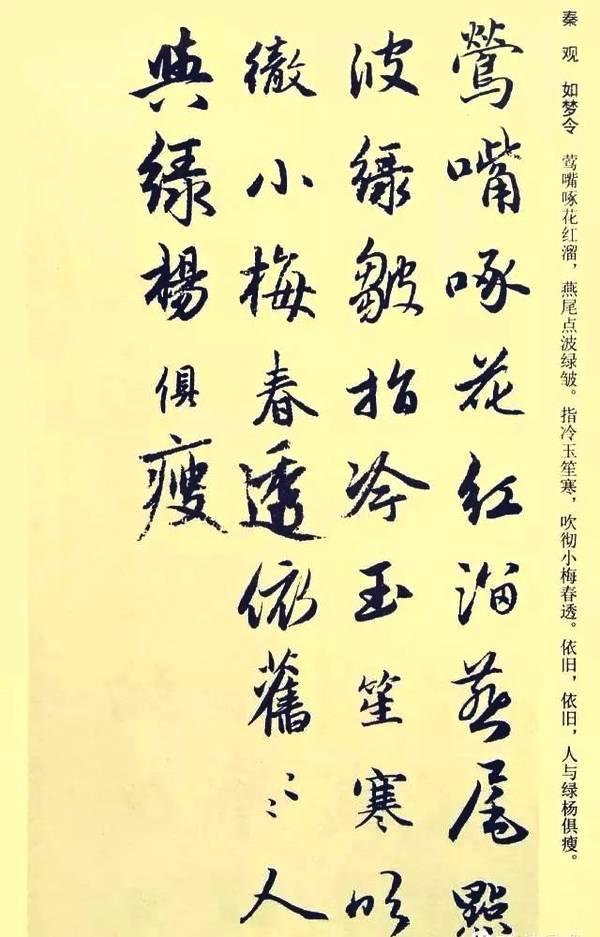 秦观 如梦令 莺嘴啄花红溜，燕尾点波绿皱。指冷玉笙寒，吹彻小梅春透。依旧，依旧，人与绿杨俱瘦。
鶯嘴啄花紅溜燕尾點
波綠皺指冷玉笙寒吹
徹小梅春透依舊〻〻人
與綠楊俱瘦